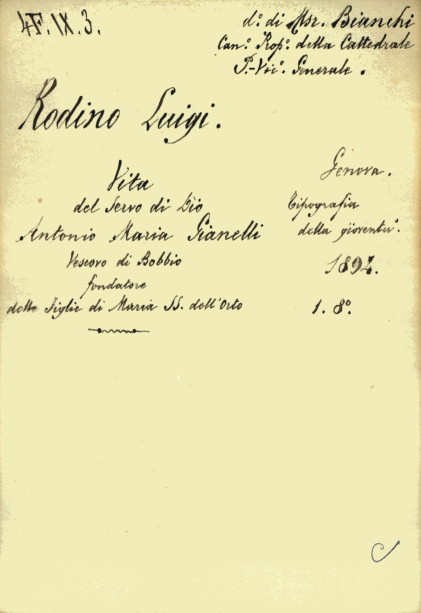 4F.IX.3.
d.º di Msr. Bianchi
Can.º Rop.º della Cattedrale
P.-Vic.º Generale.
Rodino Luigi.
Vita
del Servo di Dio
Antonio Maria Gianelli
Vescovo di Bobbio
fondatore
delle Figlie di Maria SS. dell'Orto
Genova.
Tipografia
della gioventù.
1894.
1. 8.º